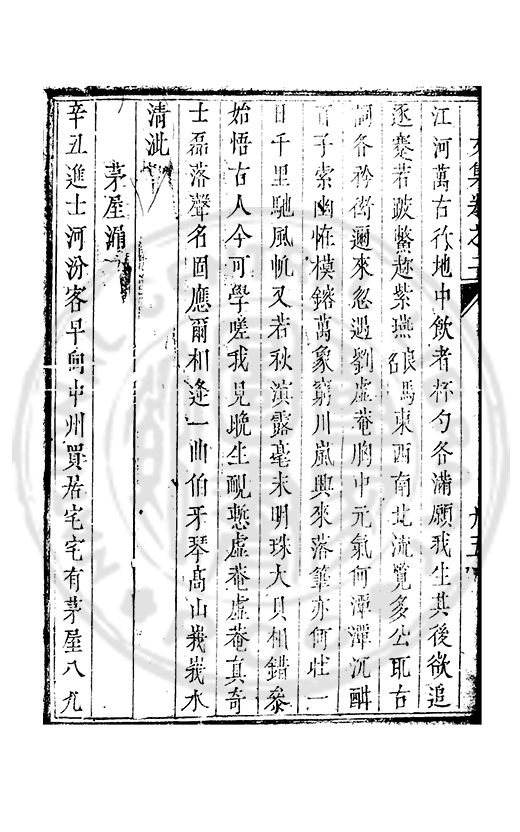 文集卷之二 廿五
江河萬古行地中飲者杯勺各滿願我生其後欲追
逐蹇若跛鱉趂紫燕 馮東西南北流覽多公耻古
詞各矜衒邇來忽遇劉虛菴胸中元氣何潭潭沉酣
百子索幽恠模鎔萬象窮川嵐興來落筆亦何壯一
日千里馳風帆又若秋滇露毫末明珠大貝相錯叅
始悟古人今可學嗟我見晚生靦慙虛菴虛菴真奇
士磊落聲名固應爾相逢一曲伯牙琴高山峩峩水
清泚
茅屋
辛丑進士河汾客早向中州買居宅宅有茅屋八九